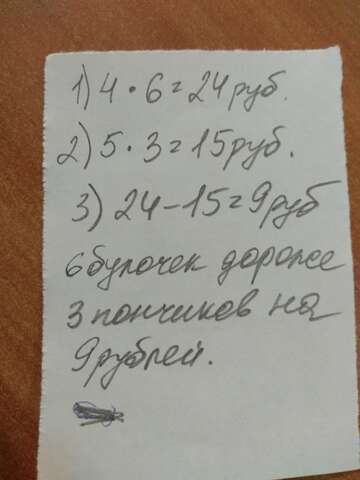 1) 4 • 6 = 24 руб.
2) 5 • 3 = 15 руб.
3) 24 - 15 = 9 руб
6 булочек дороже
3 пончиков на
9 рублей.